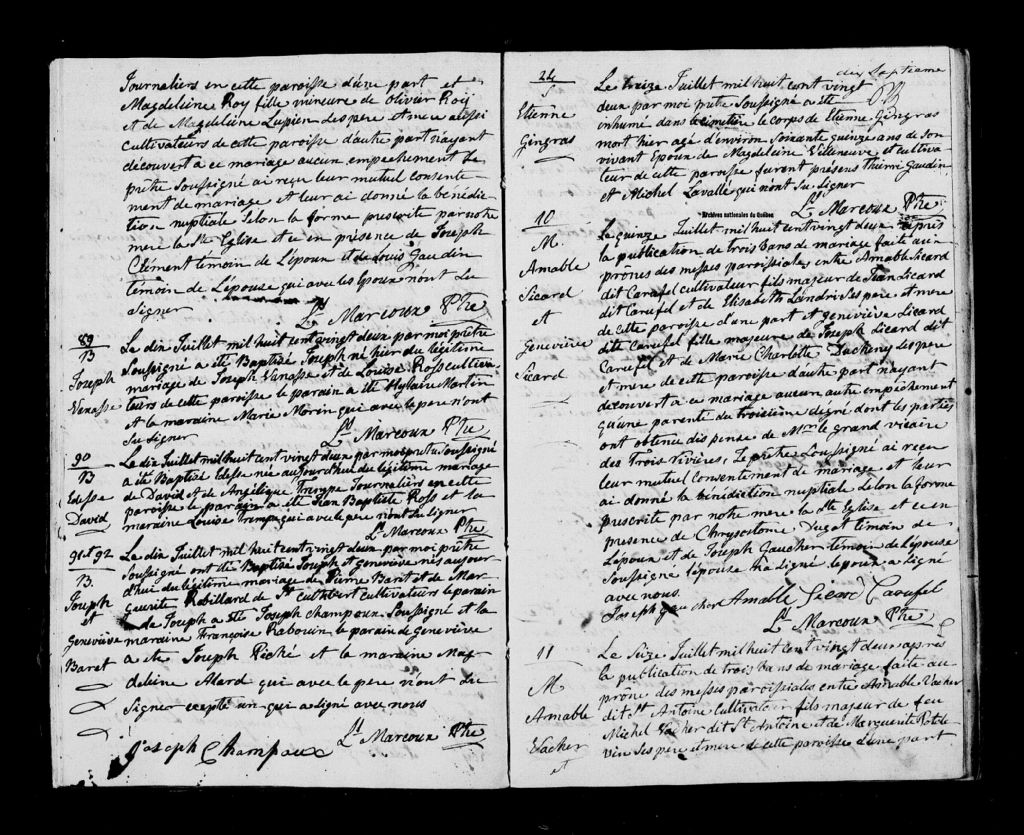 Journaliers en cette paroisse d'une part et
Magdeleine Roy fille mineure de Olivier Roy
et de Magdeleine Lupien Ses pere et mere aussi
cultivateurs de cette paroisse d'autre part n'ayant
découvert a ce mariage aucun empechement Le
prêtre Soussigné ai reçu leur mutuel consente-
ment de mariage et leur ai donné la bénédic-
tion nuptiale Selon la forme prescrite par notre
mere la Ste Eglise et ce en présence de Joseph
Clément témoin de L'époux et de Louis Gaudin
témoin de L'épouse qui avec les Epoux n'ont Su
Signer
Ls Marcoux Ptre
89
B
Joseph
Vanasse
Le dix Juillet mil huit cent vingt deux par moi prêtre
Soussigné a été Baptisé Joseph né hier du légitime
mariage de Joseph Vanasse et de Louise Ross cultiva-
teurs de cette paroisse le parain a été Hylaire Martin
et la maraine Marie Morin qui avec le pere n'ont
Su Signer
Ls Marcoux Ptre
90
B
Edesse
David
Le dix Juillet mil huit cent vingt deux par moi prêtre Soussigné
a été Baptisé Edesse née aujourd'hui du légitime mariage
de David et de Angélique Trempe Journaliers en cette
paroisse le parain a été Jean Baptiste Ross et la
maraine Louise Trempe qui avec le pere n'ont Su Signer
Ls Marcoux Ptre
91 et 92
B.
Joseph
et
Geneviève
Baret
Le dix Juillet mil huit cent vingt deux par moi prêtre
Soussigné ont été Baptisé Joseph et Geneviève nés aujour-
d'hui du légitime mariage de Pierre Baret et de Mar-
guerite Robillard de St Cuthbert cultivateurs le parain
de Joseph a été Joseph Champoux Soussigné et la
maraine Françoise Rabouin le parain de Geneviève
a été Joseph Piché et la maraine Mag-
deleine Alard qui avec le pere n'ont Su
Signer excepté un qui a Signé avec nous
Joseph Champoux Ls Marcoux Ptre
dix Septieme
24
S
Etienne
Gingras
Le treize Juillet mil huit cent vingt
deux par moi prêtre Soussigné a été
inhumé dans le cimetière le corps de Etienne Gingras
mort hier agé d'environ Soixante quinze ans de Son
vivant Epoux de Magdeleine Villeneuve et cultiva-
teur de cette paroisse furent présens Thierri Gaudin
et Michel Lavallé qui n'ont Su Signer
Ls Marcoux Ptre
Archives nationales du Québec
10
M
Amable
Sicard
et
Geneviève
Sicard
Le quinze Juillet mil huit cent vingt deux après
la publication de trois Bans de mariage faite aux
prônes des messes paroissiales entre Amable Sicard
dit Carufel cultivateur fils majeur de Jean Sicard
dit Carufel et de Elisabeth Landri Ses pere et mere
de cette paroisse d'une part et geneviève Sicard
dite Carufel fille majeure de Joseph Sicard dit
Carufel et de Marie Charlotte Ses pere
et mere de cette paroisse d'autre part n'ayant
découvert a ce mariage aucun autre empêchement
qu'une parenté du troisième degré dont les parties
ont obtenu dispense de Mr le grand vicaire
des Trois Rivières, Le prêtre Soussigné ai reçu
leur mutuel Consentement de mariage et leur
ai donné la bénédiction nuptiale Selon la forme
prescrite par notre mere la Ste Eglise et ce en
presence de Chrysostome Dugat témoin de
L'époux et de Joseph Gaucher témoin de L'épouse
Soussigné l'épouse n'a Signé l'epoux a Signé
avec nous.
Joseph gaucher Amable Sicard Carufel
Ls Marcoux Ptre
11
M
Amable
Vacher
et
Le Seize Juillet mil huit cent vingt deux après
la publication de trois Bans de mariage faite au
prône des messes paroissiales entre Amable Vacher
dit St Antoine Cultivateur fils majeur de feu
Michel Vacher dit St Antoine et de Marguerite Potde-
vin Ses pere et mere de cette paroisse d'une part